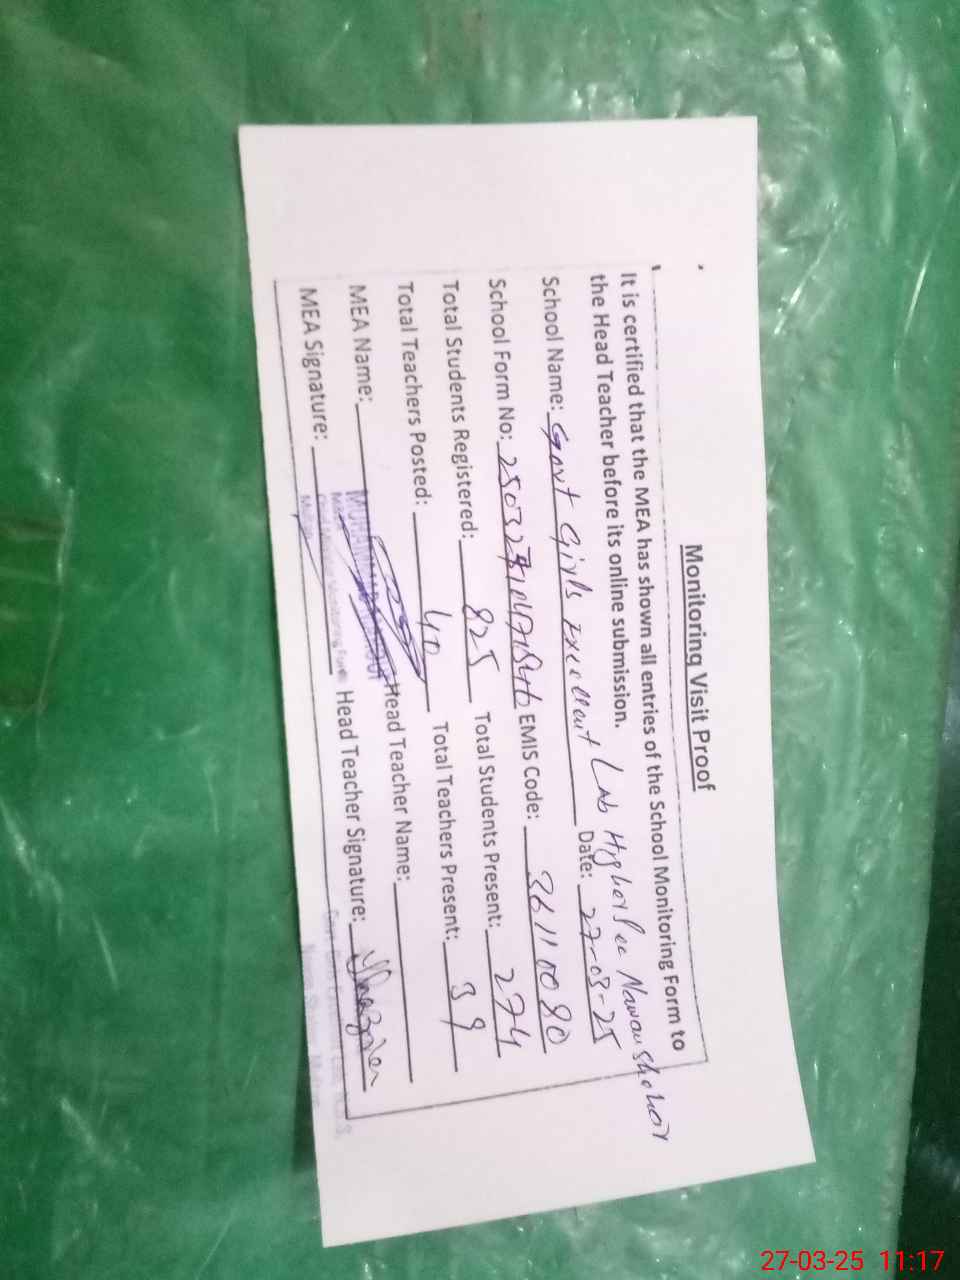 Monitoring Visit Proof
It is certified that the MEA has shown all entries of the School Monitoring Form to
the Head Teacher before its online submission.
School Name: Govt Girls Excellent Lab Higher Sec Nawan Shehar Date: 27-03-25
School Form No: EMIS Code: 36110080
Total Students Registered: 825 Total Students Present: 274
Total Teachers Posted: 40 Total Teachers Present: 39
MEA Name: Head Teacher Name:
MEA Signature: Head Teacher Signature:
27-03-25 11:17